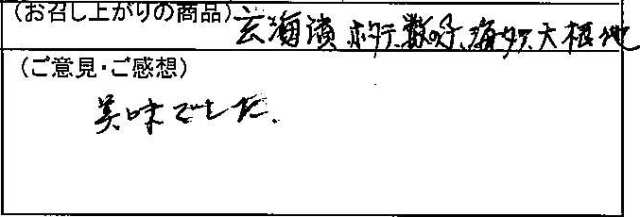 (お召し上がりの商品) 玄海漬 ホタテ、数の子、海女、大根 他
(ご意見・ご感想)
美味でした.